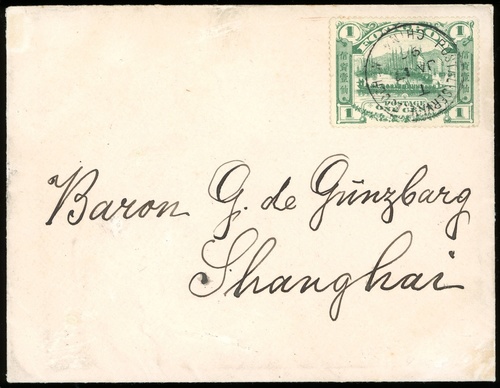 1 1
信資壹分
POSTAGE
ONE CENT
1 1
Baron G. de Günzbarg
Shanghai